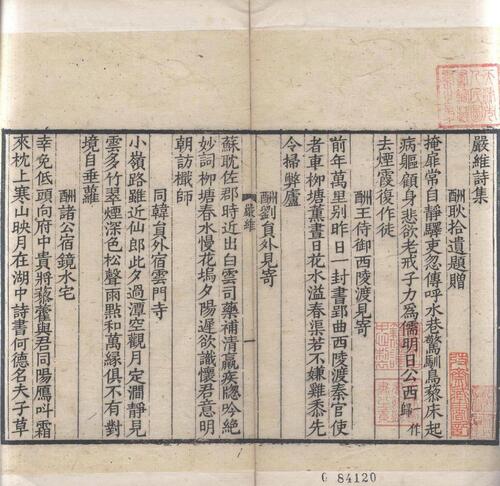 嚴維詩集
酬耿拾遺題贈
掩扉常自靜驛吏忽傳呼水巷驚馴鳥藜床起
病軀顧身悲欲老戒子力爲儒明日公西歸作
去煙霞復作徒
酬王侍御西陵渡見寄
前年萬里別昨日一封書郢曲西陵渡秦官使
者車柳塘薰晝日花水溢春渠若不嫌雞黍先
令掃弊廬
酬劉員外見寄
蘇耽佐郡時近出白雲司藥補清羸疾牕吟絶
妙詞柳塘春水慢花塢夕陽遲欲識懷君意明
朝訪檝師
嚴維
一
同韓員外宿雲門寺
小嶺路雖近仙郎此夕過潭空觀月定澗靜見
雲多竹翠煙深色松聲雨點和萬緣俱不有對
境自垂蘿
酬諸公宿鏡水宅
幸免低頭向府中貴將藜藿與君同陽鴈呌霜
來枕上寒山映月在湖中詩書何德名夫子草
G 84120